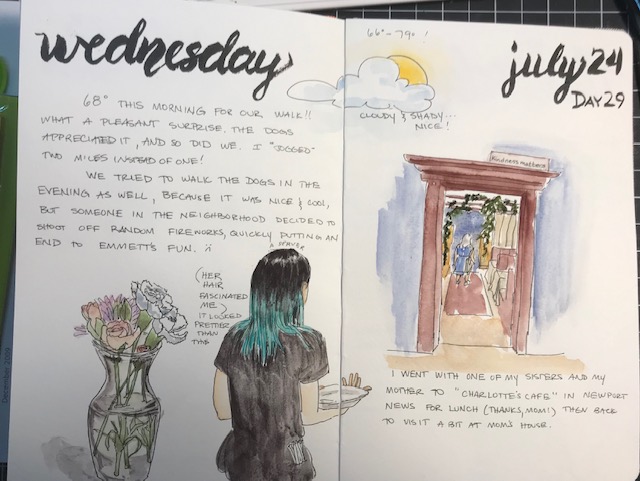 wednesday
68° THIS MORNING FOR OUR WALK!!
WHAT A PLEASANT SURPRISE. THE DOGS
APPRECIATED IT, AND SO DID WE. I "JOGGED"
TWO MILES INSTEAD OF ONE!
WE TRIED TO WALK THE DOGS IN THE
EVENING AS WELL, BECAUSE IT WAS NICE & COOL,
BUT SOMEONE IN THE NEIGHBORHOOD DECIDED TO
SHOOT OFF RANDOM FIREWORKS, QUICKLY PUTTING AN
END TO EMMETT'S FUN.
(HER
HAIR
FASCINATED
ME
IT LOOKED
PRETTIER
THAN
THIS
66°-79° !
july 24
DAY 29
CLOUDY & SHADY...
NICE!
Kindness matters
I WENT WITH ONE OF MY SISTERS AND MY
MOTHER TO "CHARLOTTE'S CAFE" IN NEWPORT
NEWS FOR LUNCH (THANKS, MOM!) THEN BACK
TO VISIT A BIT AT MOM'S HOUSE.
December 2009